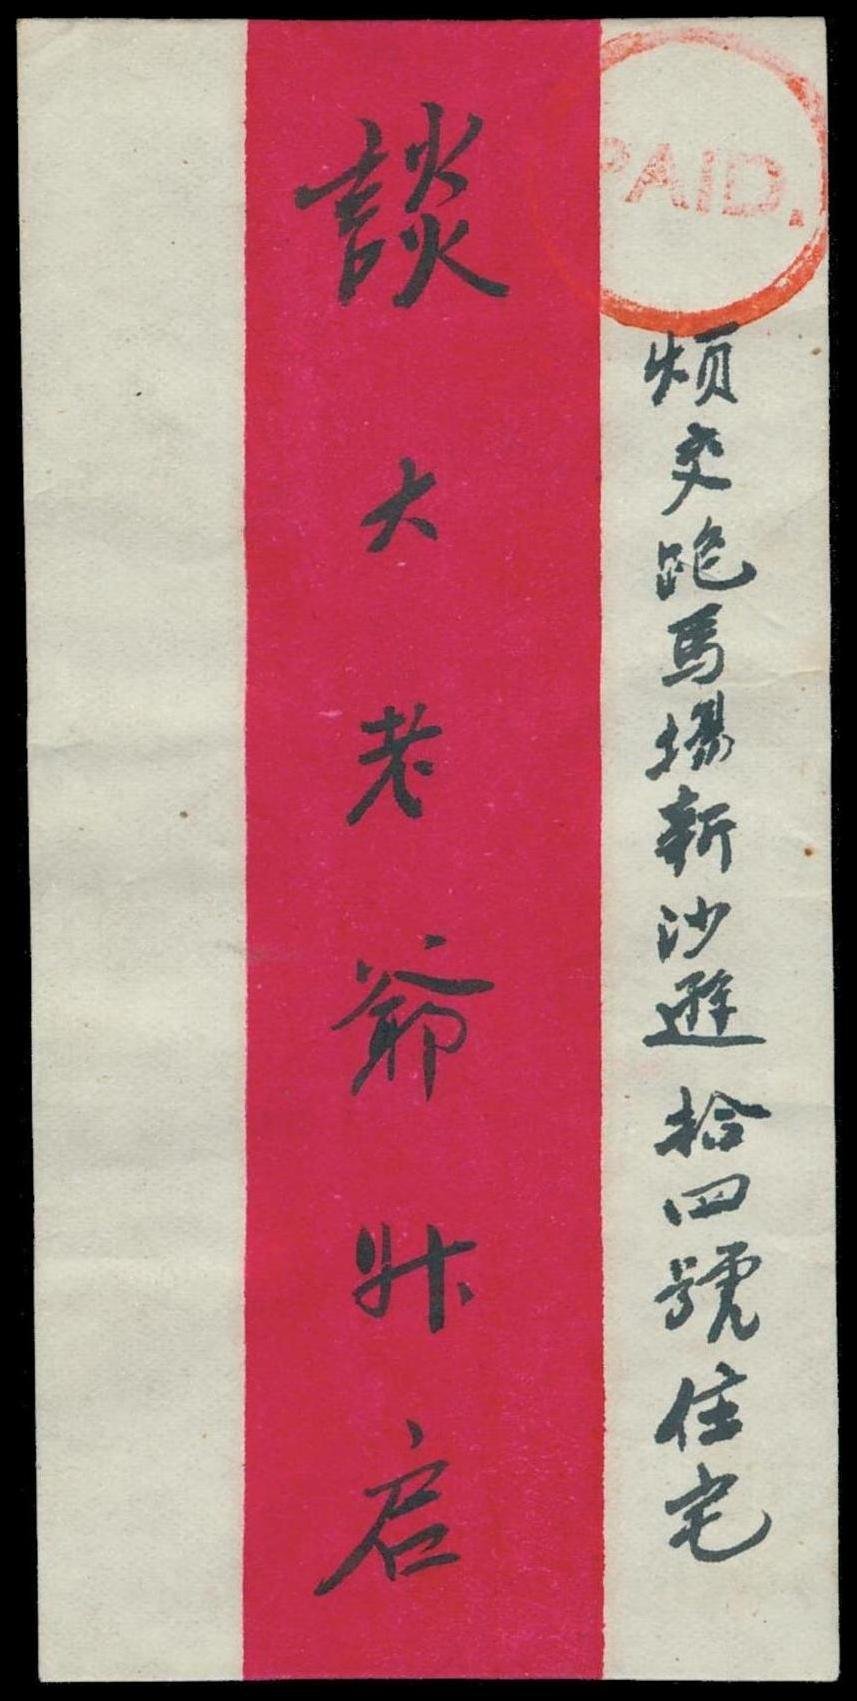 PAID.
煩交跑馬場新沙遜拾四號住宅
談大老爺升启